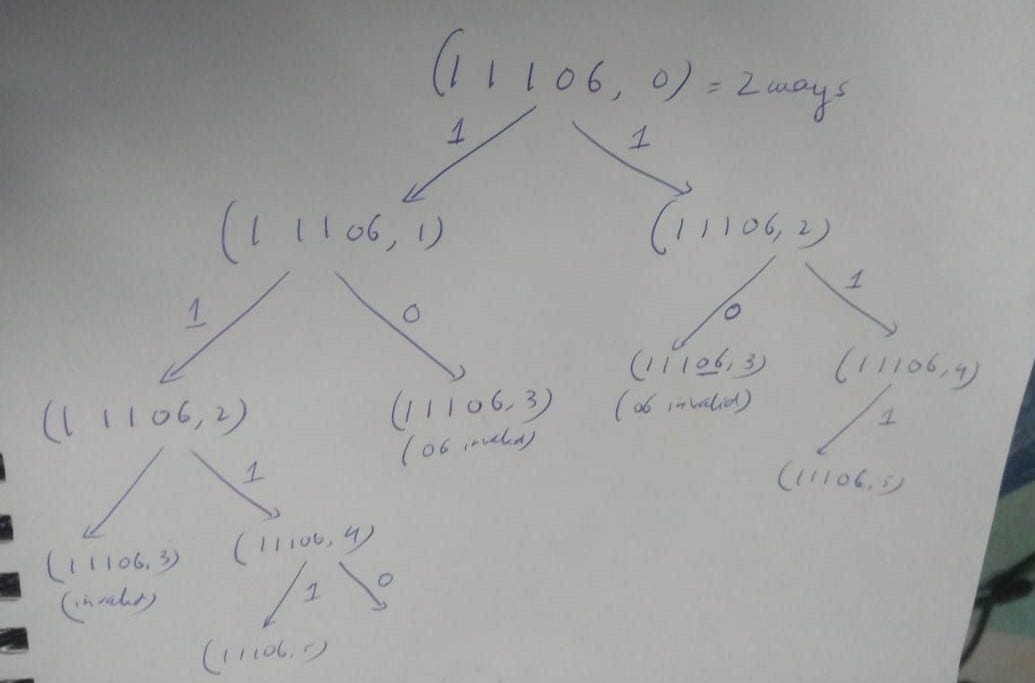 (11106, 0) = 2 ways
1 1
(11106, 1) (11106, 2)
1 0 0 1
(11106, 3) (11106, 4)
(11106, 2) (11106, 3) (06 invalid)
(06 invalid) 1
1 (11106, 5)
(11106, 3) (11106, 4)
(invalid) 1 0
(11106, 5)